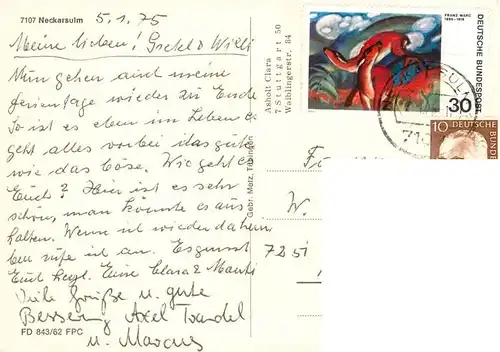 7107 Neckarsulm 5.1.75
Meine Lieben! Gretel & Willi
Nun gehen auch meine
Ferientage wieder zu Ende
So ist es eben im Leben es
geht alles vorbei das gute
wie das böse. Wie geht es
Euch? Hier ist es sehr
schön, man könnte es aus
halten. Wenn ich wieder daheim
bin rufe ich an. Es grüsst
Euch herzl. Eure Clara & Manti
Viele Grüße u. gute
Besserung Axel Traudel
u. Marcus
FD 843/62 FPC
Gebr. Metz, Tübingen
Asholt Clara
7 Stuttgart 50
Waiblingerstr. 84
FRANZ MARC
1880-1916
DEUTSCHE BUNDESPOST
30
10
DEUTSCHE
BUND
F
W.
7251